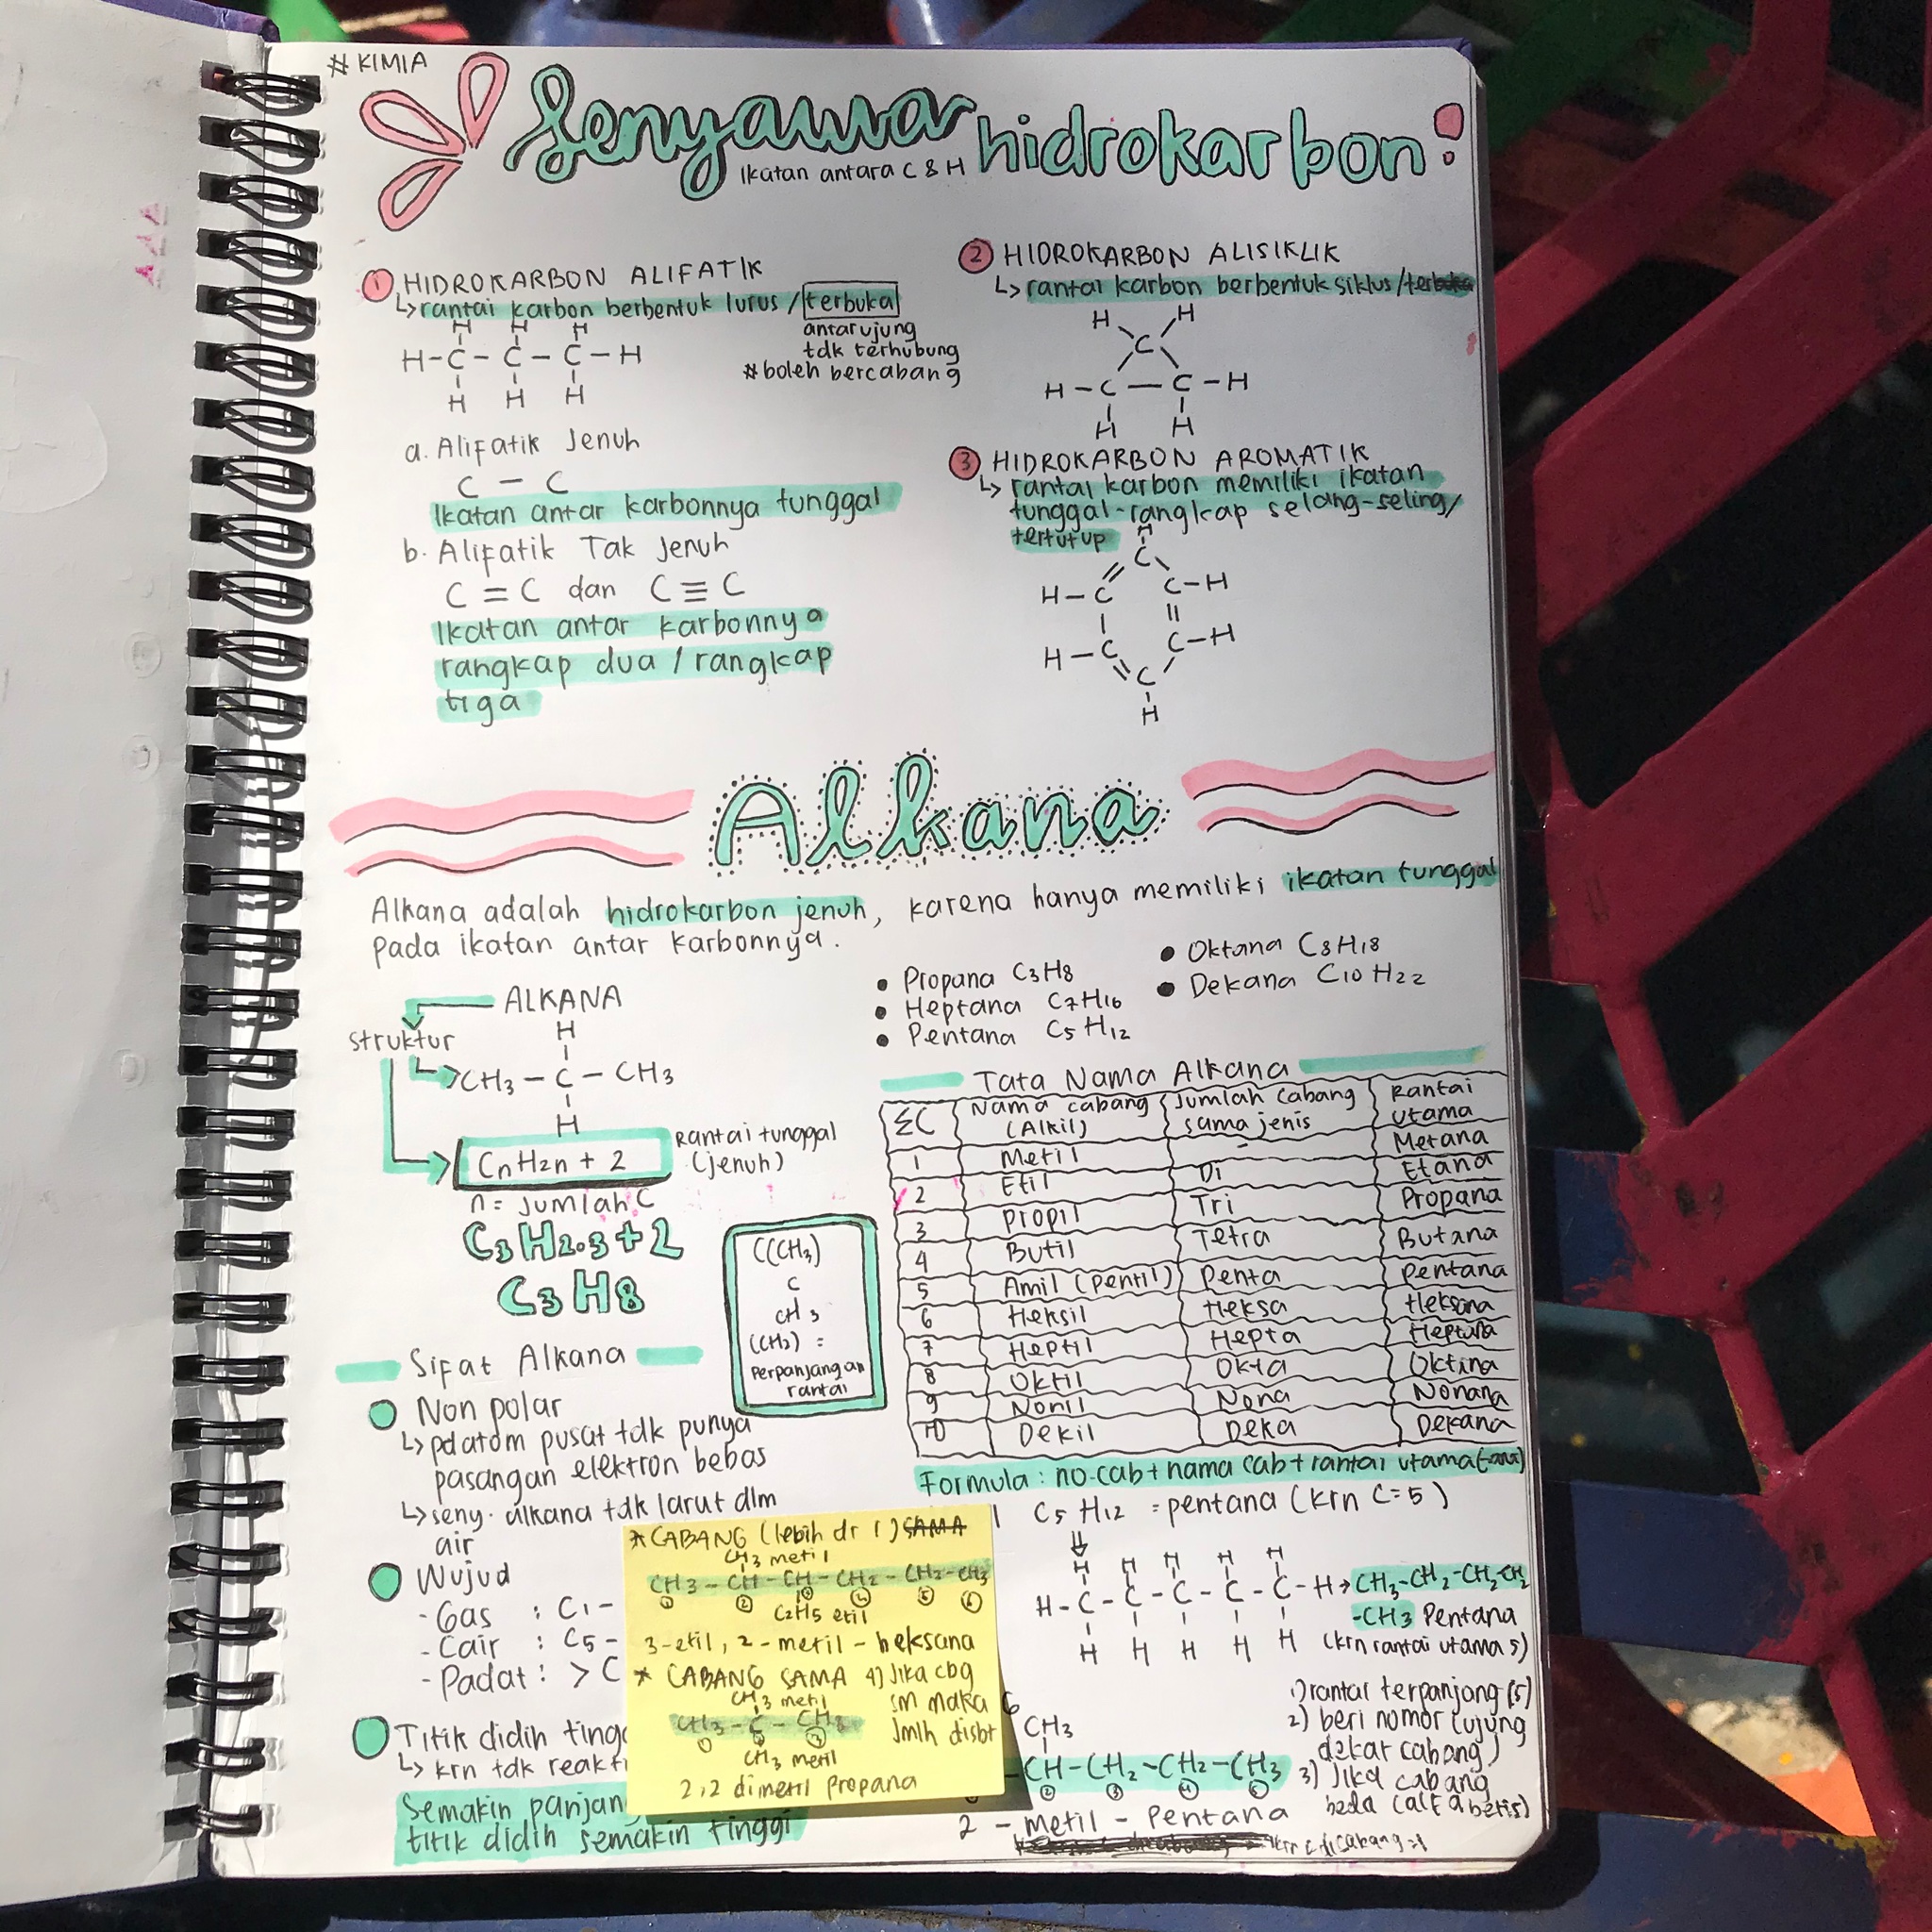 # KIMIA
Senyawa hidrokarbon!
Ikatan antara C & H
1 HIDROKARBON ALIFATIK
↳ rantai karbon berbentuk lurus / terbuka
antar ujung
tdk terhubung
# boleh bercabang
H H H
H - C - C - C - H
H H H
a. Alifatik Jenuh
C - C
Ikatan antar karbonnya tunggal
b. Alifatik Tak Jenuh
C = C dan C ≡ C
Ikatan antar karbonnya
rangkap dua / rangkap
tiga
2 HIDROKARBON ALISIKLIK
↳ rantai karbon berbentuk siklus /
H H
C
H - C — C - H
H H
3 HIDROKARBON AROMATIK
↳ rantai karbon memiliki ikatan
tunggal-rangkap selang-seling/
tertutup
H
C
H - C C - H
H - C C - H
C
H
Alkana
Alkana adalah hidrokarbon jenuh, karena hanya memiliki ikatan tunggal
pada ikatan antar karbonnya.
• Propana C3H8
• Heptana C7H16
• Pentana C5H12
• Oktana C8H18
• Dekana C10H22
ALKANA
struktur
H
CH3 - C - CH3
H
CnH2n + 2
Rantai tunggal
(jenuh)
n = jumlah C
C3H2.3+2
C3H8
((CH3)
C
CH3
(CH2) =
Perpanjangan
rantai
Tata Nama Alkana
ΣC Nama cabang (Alkil) Jumlah cabang sama jenis Rantai utama
1 Metil - Metana
2 Etil Di Etana
3 Propil Tri Propana
4 Butil Tetra Butana
5 Amil (Pentil) Penta Pentana
6 Heksil Heksa Heksana
7 Heptil Hepta Heptana
8 Oktil Okta Oktana
9 Nonil Nona Nonana
10 Dekil Deka Dekana
Formula : no-cab + nama cab + rantai utama (ana)
Sifat Alkana
Non polar
↳ pd atom pusat tdk punya
pasangan elektron bebas
↳ seny. alkana tdk larut dlm
air
Wujud
- Gas : C1 -
- Cair : C5 -
- Padat : > C
Titik didih tingg
↳ krn tdk reakti
Semakin panjan
titik didih semakin tinggi
* CABANG (lebih dr 1) SAMA
CH3 metil
CH3 - CH - CH - CH2 - CH2 - CH3
1 2 3 4 5 6
C2H5 etil
3-etil, 2-metil-heksana
* CABANG SAMA
4) Jika cbg
sm maka
Jmlh disbt
CH3 metil
CH3 - C - CH3
1 2 3
CH3 metil
2,2 dimetil propana
C5H12 = pentana (krn C=5)
H H H H H
H - C - C - C - C - C - H → CH3-CH2-CH2-CH2
-CH3 Pentana
H H H H H
(krn rantai utama 5)
CH3
CH - CH2 - CH2 - CH3
2 3 4 5
2 - metil - Pentana
1) rantai terpanjang (5)
2) beri nomor (ujung
dekat cabang)
3) Jika cabang
beda (alfabetis)
krn c dicabang = 1